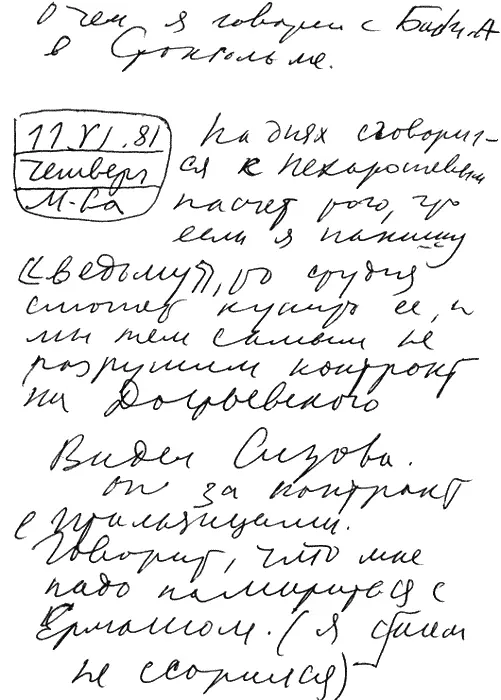 О чем я говорил с Биби А
в Стокгольме.
11.VI.81
Четверг
М-ва
На днях сговорил-
ся к Нехорошевым
насчет того, что
если я напишу
«Ведьму», то студия
сможет купить ее, и
мы тем самым не
разрушим контракт
на Достоевского
Видел Сизова.
он за контракт
с итальянцами.
Говорит, что мне
надо помириться с
Ермашом. (я с ним
не ссорился)